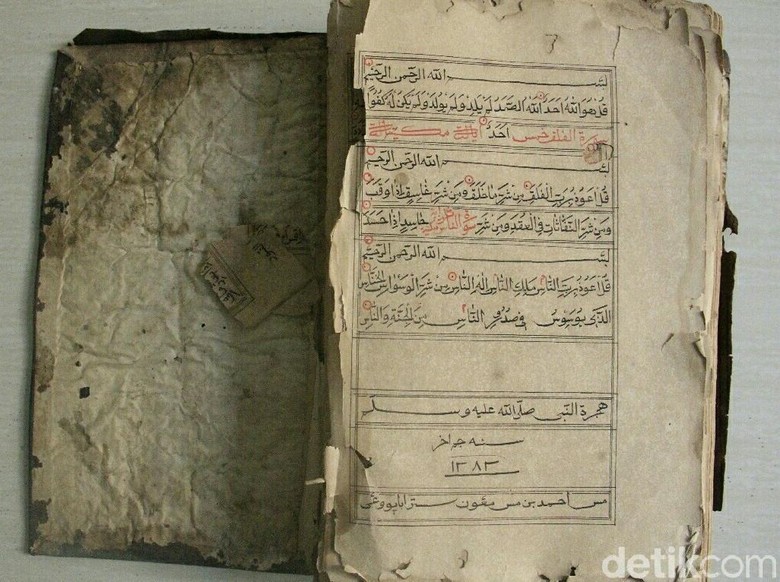 بســـــــــــم الله الرحمن الرحيم
قل هو الله احد الله الصمد لم يلد ولم يولد ولم يكن له كفوا
احد سورة الفلق خمس ايات مكية
بســـــــــــم الله الرحمن الرحيم
قل اعوذ برب الفلق من شر ما خلق ومن شر غاسق اذا وقب
ومن شر النفاثات في العقد ومن شر حاسد اذا حسد سورة الناس
بســـــــــــم الله الرحمن الرحيم
قل اعوذ برب الناس ملك الناس اله الناس من شر الوسواس الخناس
الذي يوسوس في صدور الناس من الجنة والناس
هجرة النبي صلى الله عليه وسلم
سنه
١٢٨٣
مس احمد بن مس
detikcom